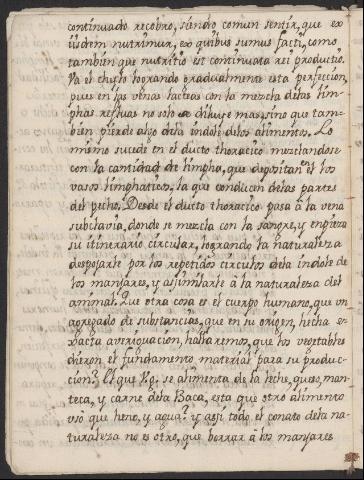 continuado recobro, siendo comun sentir, que ex
iisdem nutrimur, ex quibus sumus facti, como
tambien que nutritio est continuata rei productio.
Va el chylo logrando gradualmente esta perfeccion,
pues en las venas lacteas con la mezcla delas lim-
phas refluas no solo se diluye mas, sino que tam-
bien pierde algo dela indole delos alimentos. Lo
mismo sucede en el ducto thoracico mezclandose
con la cantidad de limpha, que depositan en él los
vasos limphaticos, la que conducen delas partes
del pecho. Desde el ducto thoracico pasa à la vena
subclavia, donde se mezcla con la sangre, y empieza
su itinerario circular, logrando la naturaleza
despojarle por los repetidos circulos dela indole de
los manjares, y asimilarle à la naturaleza del
animal. Que otra cosa es el cuerpo humano, que un
agregado de substancias, que en su origen, hecha e-
xacta averiguacion, hallaremos, que los vegetables
dieron el fundamento material para su produc-
cion? El que Vg. se alimenta de la leche, queso, man-
teca, y carne dela Baca, esta que otro alimento
usò que heno, y agua? y assi todo el conato dela na-
turaleza no es otro, que borrar à los manjares